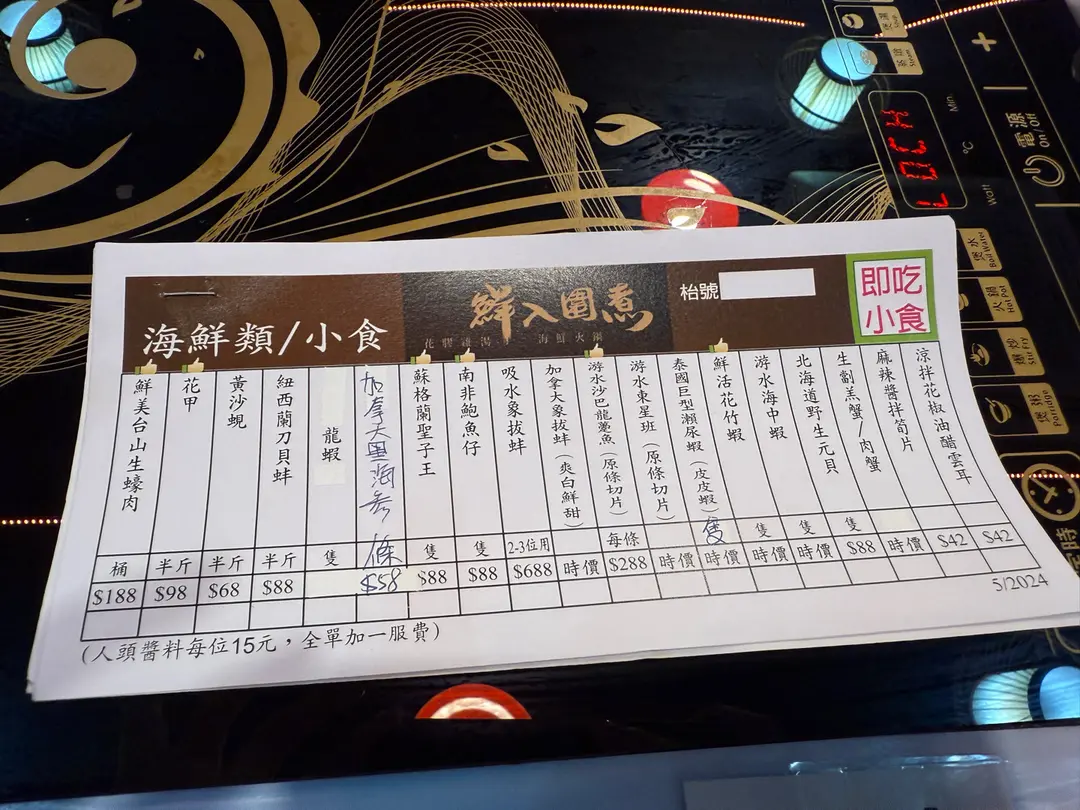 海鮮類/小食
鮮入圍煮
枱號
即吃
小食
鮮美台山生蠔肉
桶
$188
花甲
半斤
$98
黃沙蜆
半斤
$68
紐西蘭刀貝蚌
半斤
$88
龍蝦
隻
加拿大黑海參
條
$58
蘇格蘭聖子王
隻
$88
南非鮑魚仔
隻
$88
吸水象拔蚌
2-3位用
$688
加拿大象拔蚌(爽白鮮甜)
時價
游水沙巴龍躉魚(原條切片)
每條
$288
游水東星班(原條切片)
時價
泰國巨型瀨尿蝦(皮皮蝦)
隻
時價
鮮活花竹蝦
隻
時價
游水海中蝦
隻
時價
北海道野生元貝
隻
$88
生劏羔蟹/肉蟹
時價
麻辣醬拌筍片
$42
涼拌花椒油醋雲耳
$42
(人頭醬料每位15元，全單加一服費)
5/2024
LOCK
Min
°C
Watt
電源
On/Off
煲水
Boil Water
火鍋
Hot Pot
爆炒
Stir Fry
煲粥
Porridge